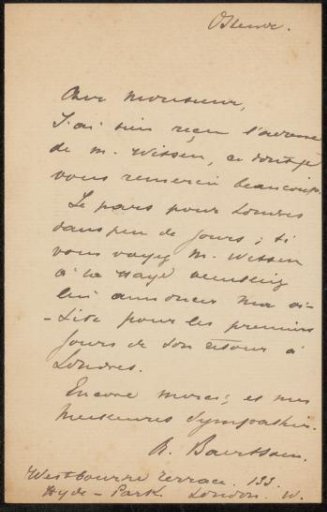 Ostende.
Cher Monsieur,
J'ai bien reçu l'adresse
de M. Wissen, ce dont je
vous remercie beaucoup.
Je pars pour Londres
dans peu de jours; si
vous voyez M. Wissen
à La Haye veuillez
lui annoncer ma vi-
-site pour les premiers
jours de son retour à
Londres.
Encore merci, et mes
meilleures sympathies.
Westbourne Terrace. 133.
Hyde-Park London. W.